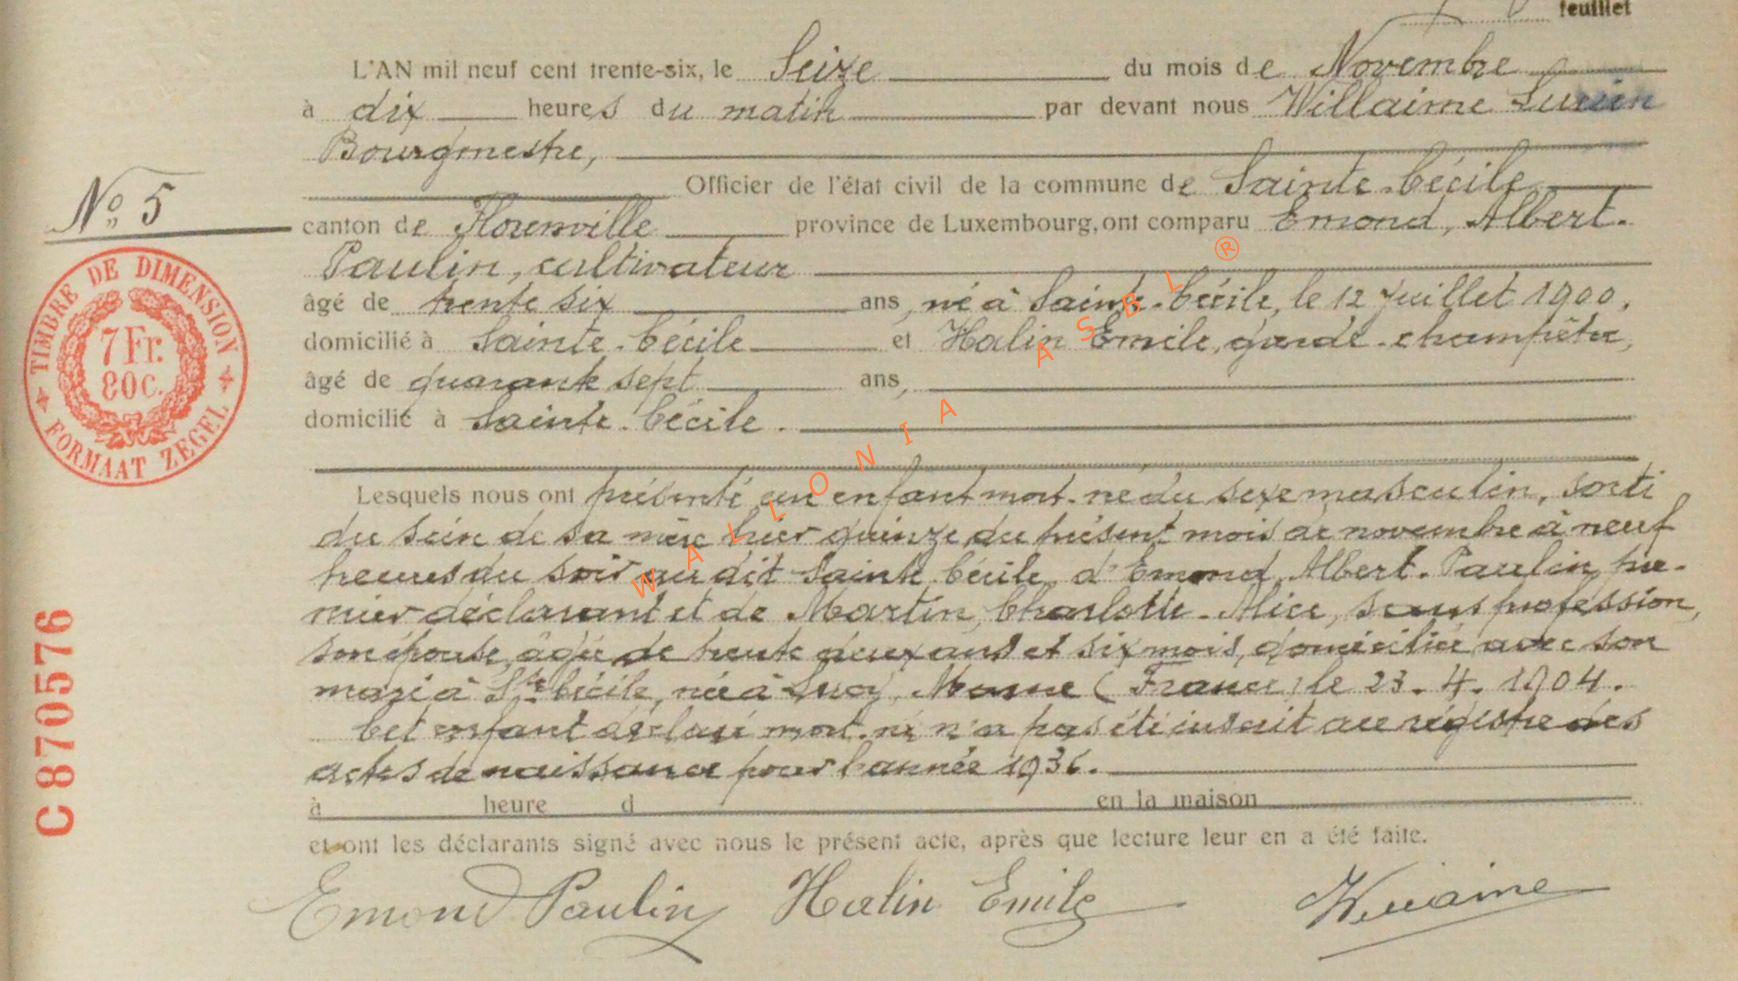 feuillet
L'AN mil neuf cent trente-six, le Seize du mois de Novembre
à dix heures du matin par devant nous Willaime Lucien
Bourgmestre,
Officier de l'état civil de la commune de Sainte-Cécile
No 5
canton de Florenville province de Luxembourg, ont comparu Emond, Albert-
Paulin, cultivateur
âgé de trente six ans, né à Sainte-Cécile, le 12 Juillet 1900,
domicilié à Sainte-Cécile et Halin Emile, garde-champêtre,
âgé de quarante sept ans,
domicilié à Sainte-Cécile.
TIMBRE DE DIMENSION
7 Fr.
80c.
FORMAAT ZEGEL
Lesquels nous ont présenté un enfant mort-né du sexe masculin, sorti
du sein de sa mère hier quinze du présent mois de novembre à neuf
heures du soir au dit Sainte-Cécile, d'Emond, Albert-Paulin, pre-
mier déclarant et de Martin, Charlotte-Alice, sans profession,
son épouse, âgée de trente deux ans et six mois, domiciliée avec son
mari à Ste-Cécile, née à Marne (France) le 23.4.1904.
Cet enfant déclaré mort-né n'a pas été inscrit au régistre des
actes de naissance pour l'année 1936.
à heure d en la maison
et ont les déclarants signé avec nous le présent acte, après que lecture leur en a été faite.
Emond Paulin Halin Emile Willaime
C870576
WALLONIA ASBL ®